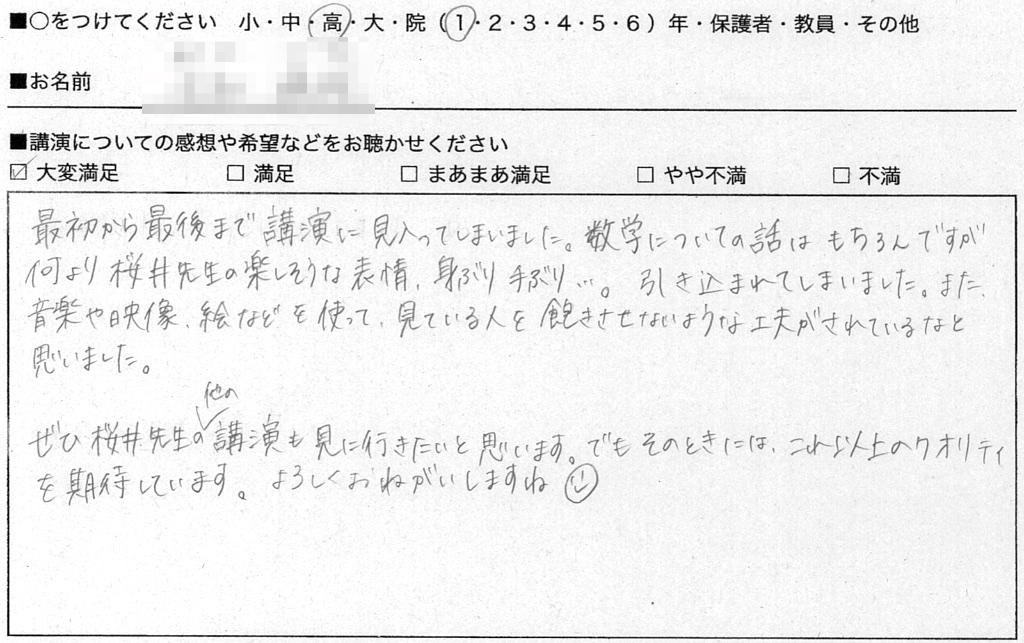 ■○をつけてください 小・中・高・大・院（1・2・3・4・5・6）年・保護者・教員・その他
■お名前
■講演についての感想や希望などをお聴かせください
☑ 大変満足 □ 満足 □ まあまあ満足 □ やや不満 □ 不満
最初から最後まで講演に見入ってしまいました。数学についての話はもちろんですが
何より桜井先生の楽しそうな表情、身ぶり手ぶり…。引き込まれてしまいました。また、
音楽や映像、絵などを使って、見ている人を飽きさせないような工夫がされているなと
思いました。
他の
ぜひ桜井先生の講演も見に行きたいと思います。でもそのときには、これ以上のクオリティ
を期待しています。よろしくおねがいしますね